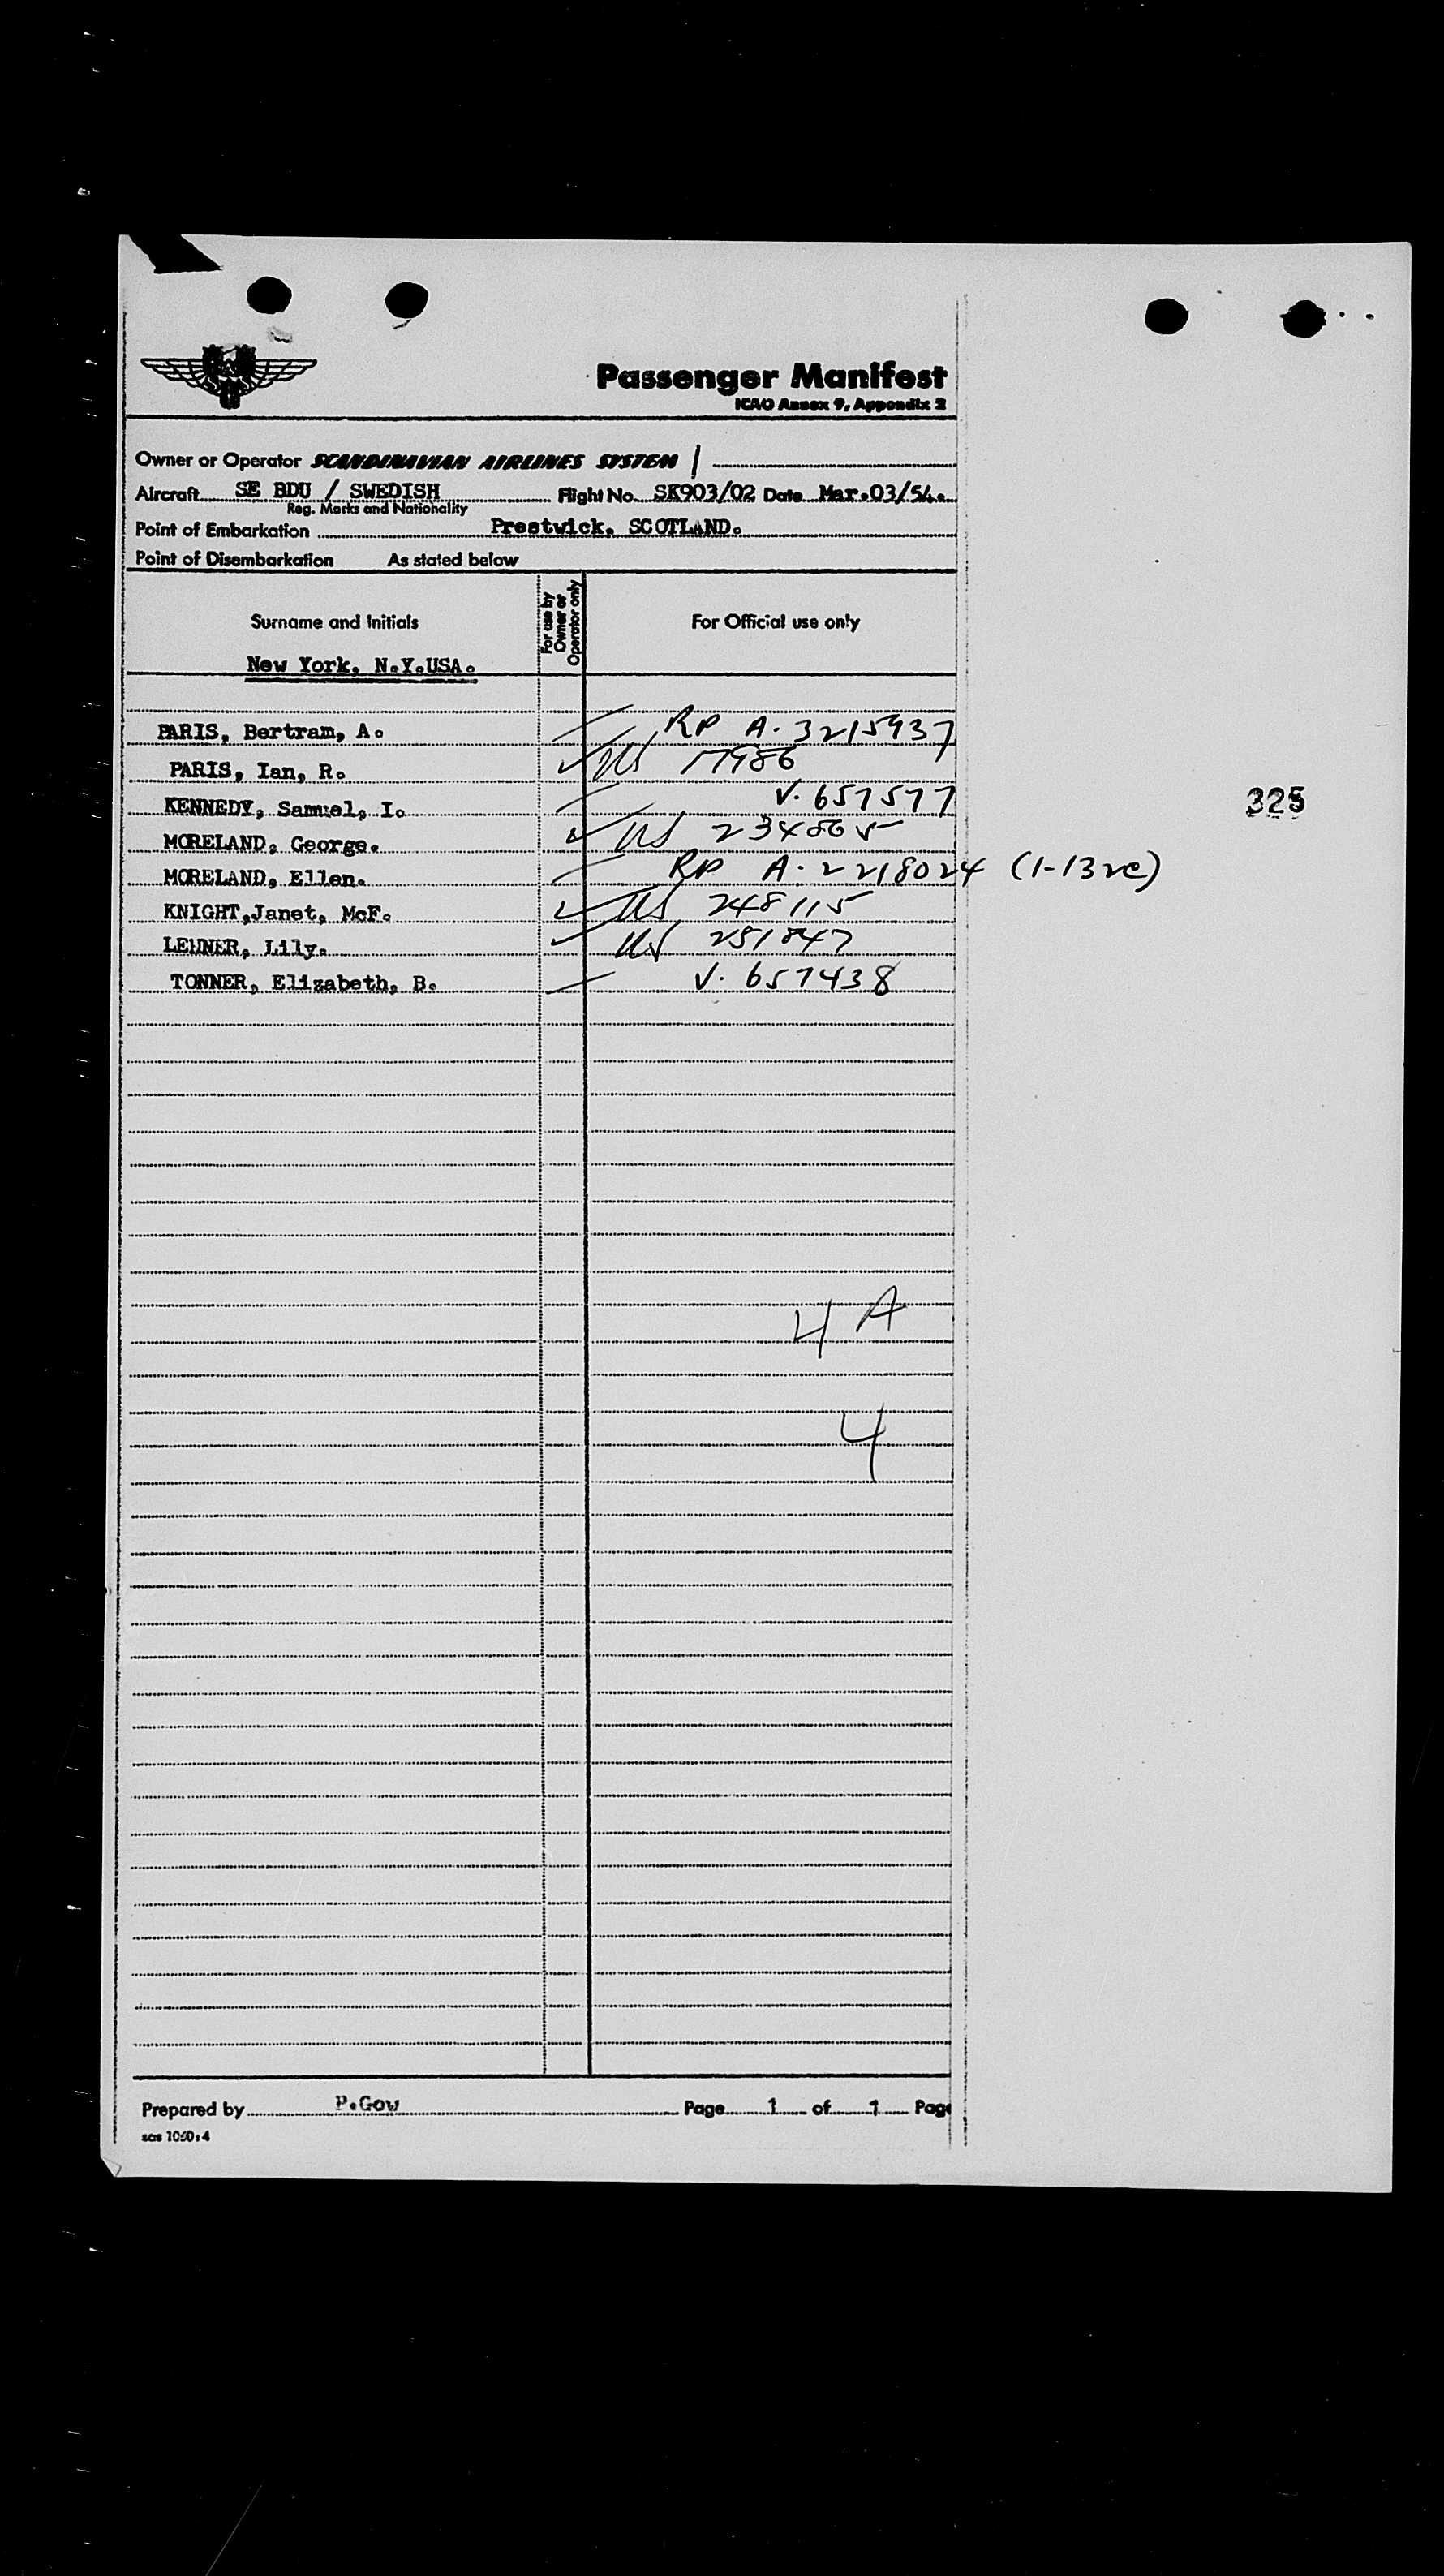 Passenger Manifest
ICAO Annex 9, Appendix 2
Owner or Operator SCANDINAVIAN AIRLINES SYSTEM
Aircraft SE BDU / SWEDISH Flight No. SK903/02 Date Mar.03/54.
Reg. Marks and Nationality
Point of Embarkation Prestwick, SCOTLAND.
Point of Disembarkation As stated below
Surname and Initials For use by Owner or Operator only For Official use only
New York, N.Y.USA.
PARIS, Bertram, A. RP A. 3215937
PARIS, Ian, R. US 17986
KENNEDY, Samuel, I. V. 657577
325
MORELAND, George. US
MORELAND, Ellen. RP A. 2218024 (1-13 )
KNIGHT,Janet, McF. US 248115
Lily. US 251847
TONNER, Elizabeth, B. V. 657438
4 A
4
Prepared by P.Gow Page 1 of 1 Page
sas 1060:4